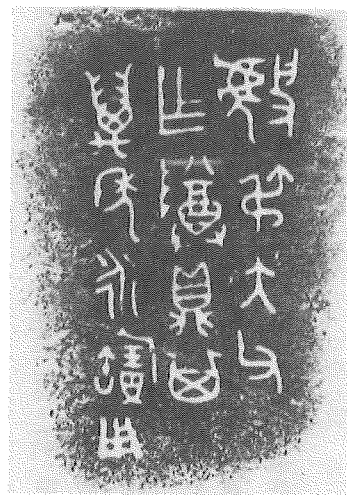 叔大父
乍尊鼎其
萬年永寶用